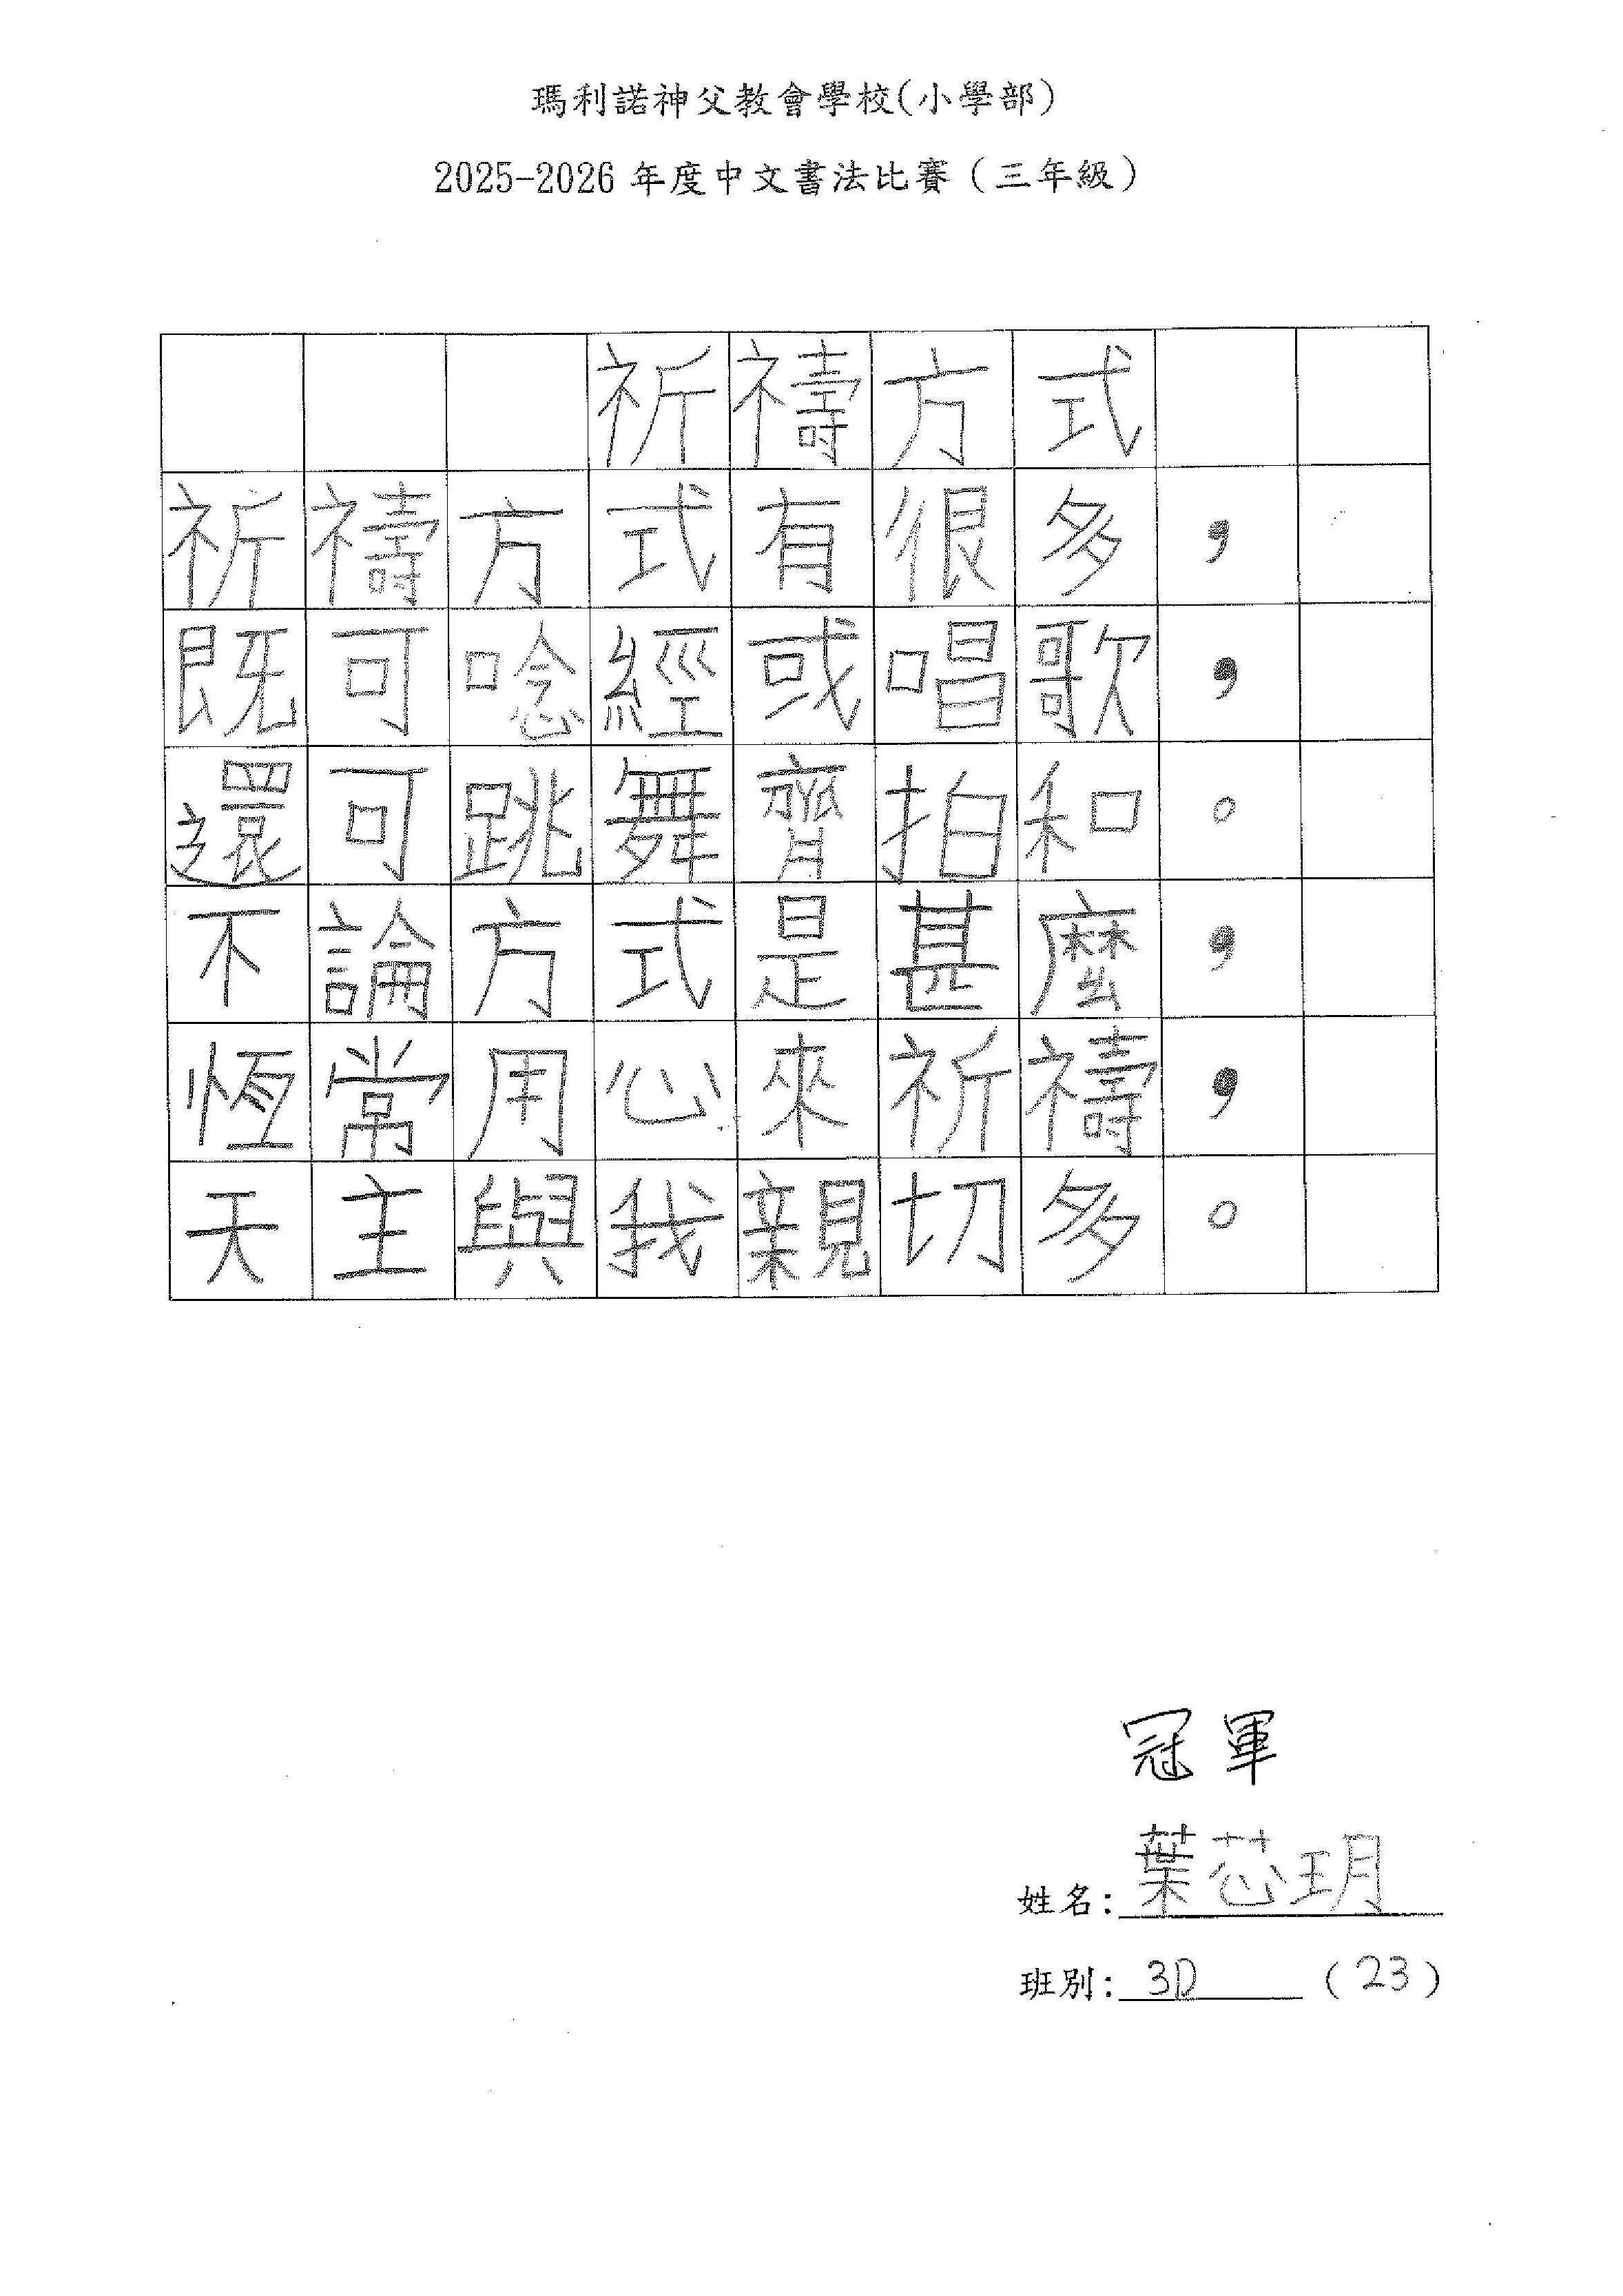 瑪利諾神父教會學校(小學部)
2025-2026 年度中文書法比賽（三年級）
祈禱方式
祈禱方式有很多，
既可唸經或唱歌，
還可跳舞齊拍和。
不論方式是甚麼，
恆常用心來祈禱，
天主與我親切多。
冠軍
姓名：葉芯玥
班別：3D （23）